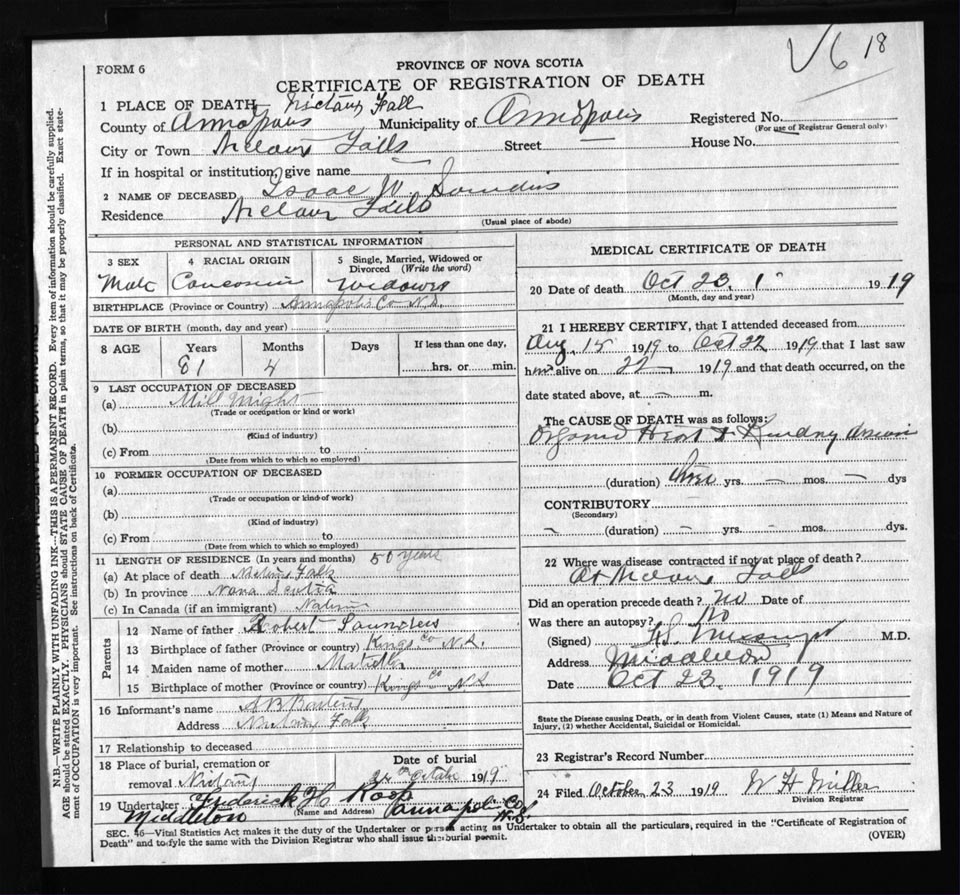 V6 18
FORM 6
PROVINCE OF NOVA SCOTIA
CERTIFICATE OF REGISTRATION OF DEATH
1 PLACE OF DEATH— Nictaux Fall
County of Annapolis Municipality of Annapolis Registered No.
(For use of Registrar General only)
City or Town Nictaux Falls Street House No.
If in hospital or institution, give name
2 NAME OF DECEASED Isaac W Saunders
Residence Nictaux Falls
(Usual place of abode)
PERSONAL AND STATISTICAL INFORMATION
3 SEX 4 RACIAL ORIGIN 5 Single, Married, Widowed or Divorced (Write the word)
Male Widower
BIRTHPLACE (Province or Country) Annapolis Co N.S.
DATE OF BIRTH (month, day and year)
8 AGE Years Months Days If less than one day,
81 4 hrs. or min.
9 LAST OCCUPATION OF DECEASED
(a) Mill Wright
(Trade or occupation or kind or work)
(b)
(Kind of industry)
(c) From to
(Date from which to which so employed)
10 FORMER OCCUPATION OF DECEASED
(a)
(Trade or occupation or kind of work)
(b)
(Kind of industry)
(c) From to
(Date from which to which so employed)
11 LENGTH OF RESIDENCE (In years and months) 50 years
(a) At place of death Nictaux Falls
(b) In province Nova Scotia
(c) In Canada (if an immigrant) Native
Parents
12 Name of father Robert Saunders
13 Birthplace of father (Province or country) Kings Co N.S.
14 Maiden name of mother
15 Birthplace of mother (Province or country) Kings Co N.S.
16 Informant's name A B
Address Nictaux Falls
17 Relationship to deceased
18 Place of burial, cremation or removal Nictaux
Date of burial
24th October 1919
19 Undertaker Frederick H Roop
(Name and Address)
Middleton Annapolis Co N.S.
MEDICAL CERTIFICATE OF DEATH
20 Date of death Oct 23. 1919
(Month, day and year)
21 I HEREBY CERTIFY, that I attended deceased from
Aug 15 1919 to Oct 22 1919 that I last saw
him alive on 22 1919 and that death occurred, on the
date stated above, at — m.
The CAUSE OF DEATH was as follows:
Organic Heart & Kidney
(duration) three yrs. — mos. — dys
CONTRIBUTORY
(Secondary)
— (duration) — yrs. — mos. dys.
22 Where was disease contracted if not at place of death?
At Nictaux Falls
Did an operation precede death? no Date of
Was there an autopsy? No
(Signed) M.D.
Address Middleton
Date Oct 23. 1919
State the Disease causing Death, or in death from Violent Causes, state (1) Means and Nature of
Injury, (2) whether Accidental, Suicidal or Homicidal.
23 Registrar's Record Number
24 Filed October 23 1919 W H Miller
Division Registrar
SEC. 46—Vital Statistics Act makes it the duty of the Undertaker or person acting as Undertaker to obtain all the particulars, required in the "Certificate of Registration of
Death" and to fyle the same with the Division Registrar who shall issue the burial permit. (OVER)
N.B.—WRITE PLAINLY WITH UNFADING INK—THIS IS A PERMANENT RECORD. Every item of information should be carefully supplied.
AGE should be stated EXACTLY. PHYSICIANS should STATE CAUSE OF DEATH in plain terms, so that it may be properly classified. Exact state-
ment of OCCUPATION is very important. See instructions on back of Certificate.